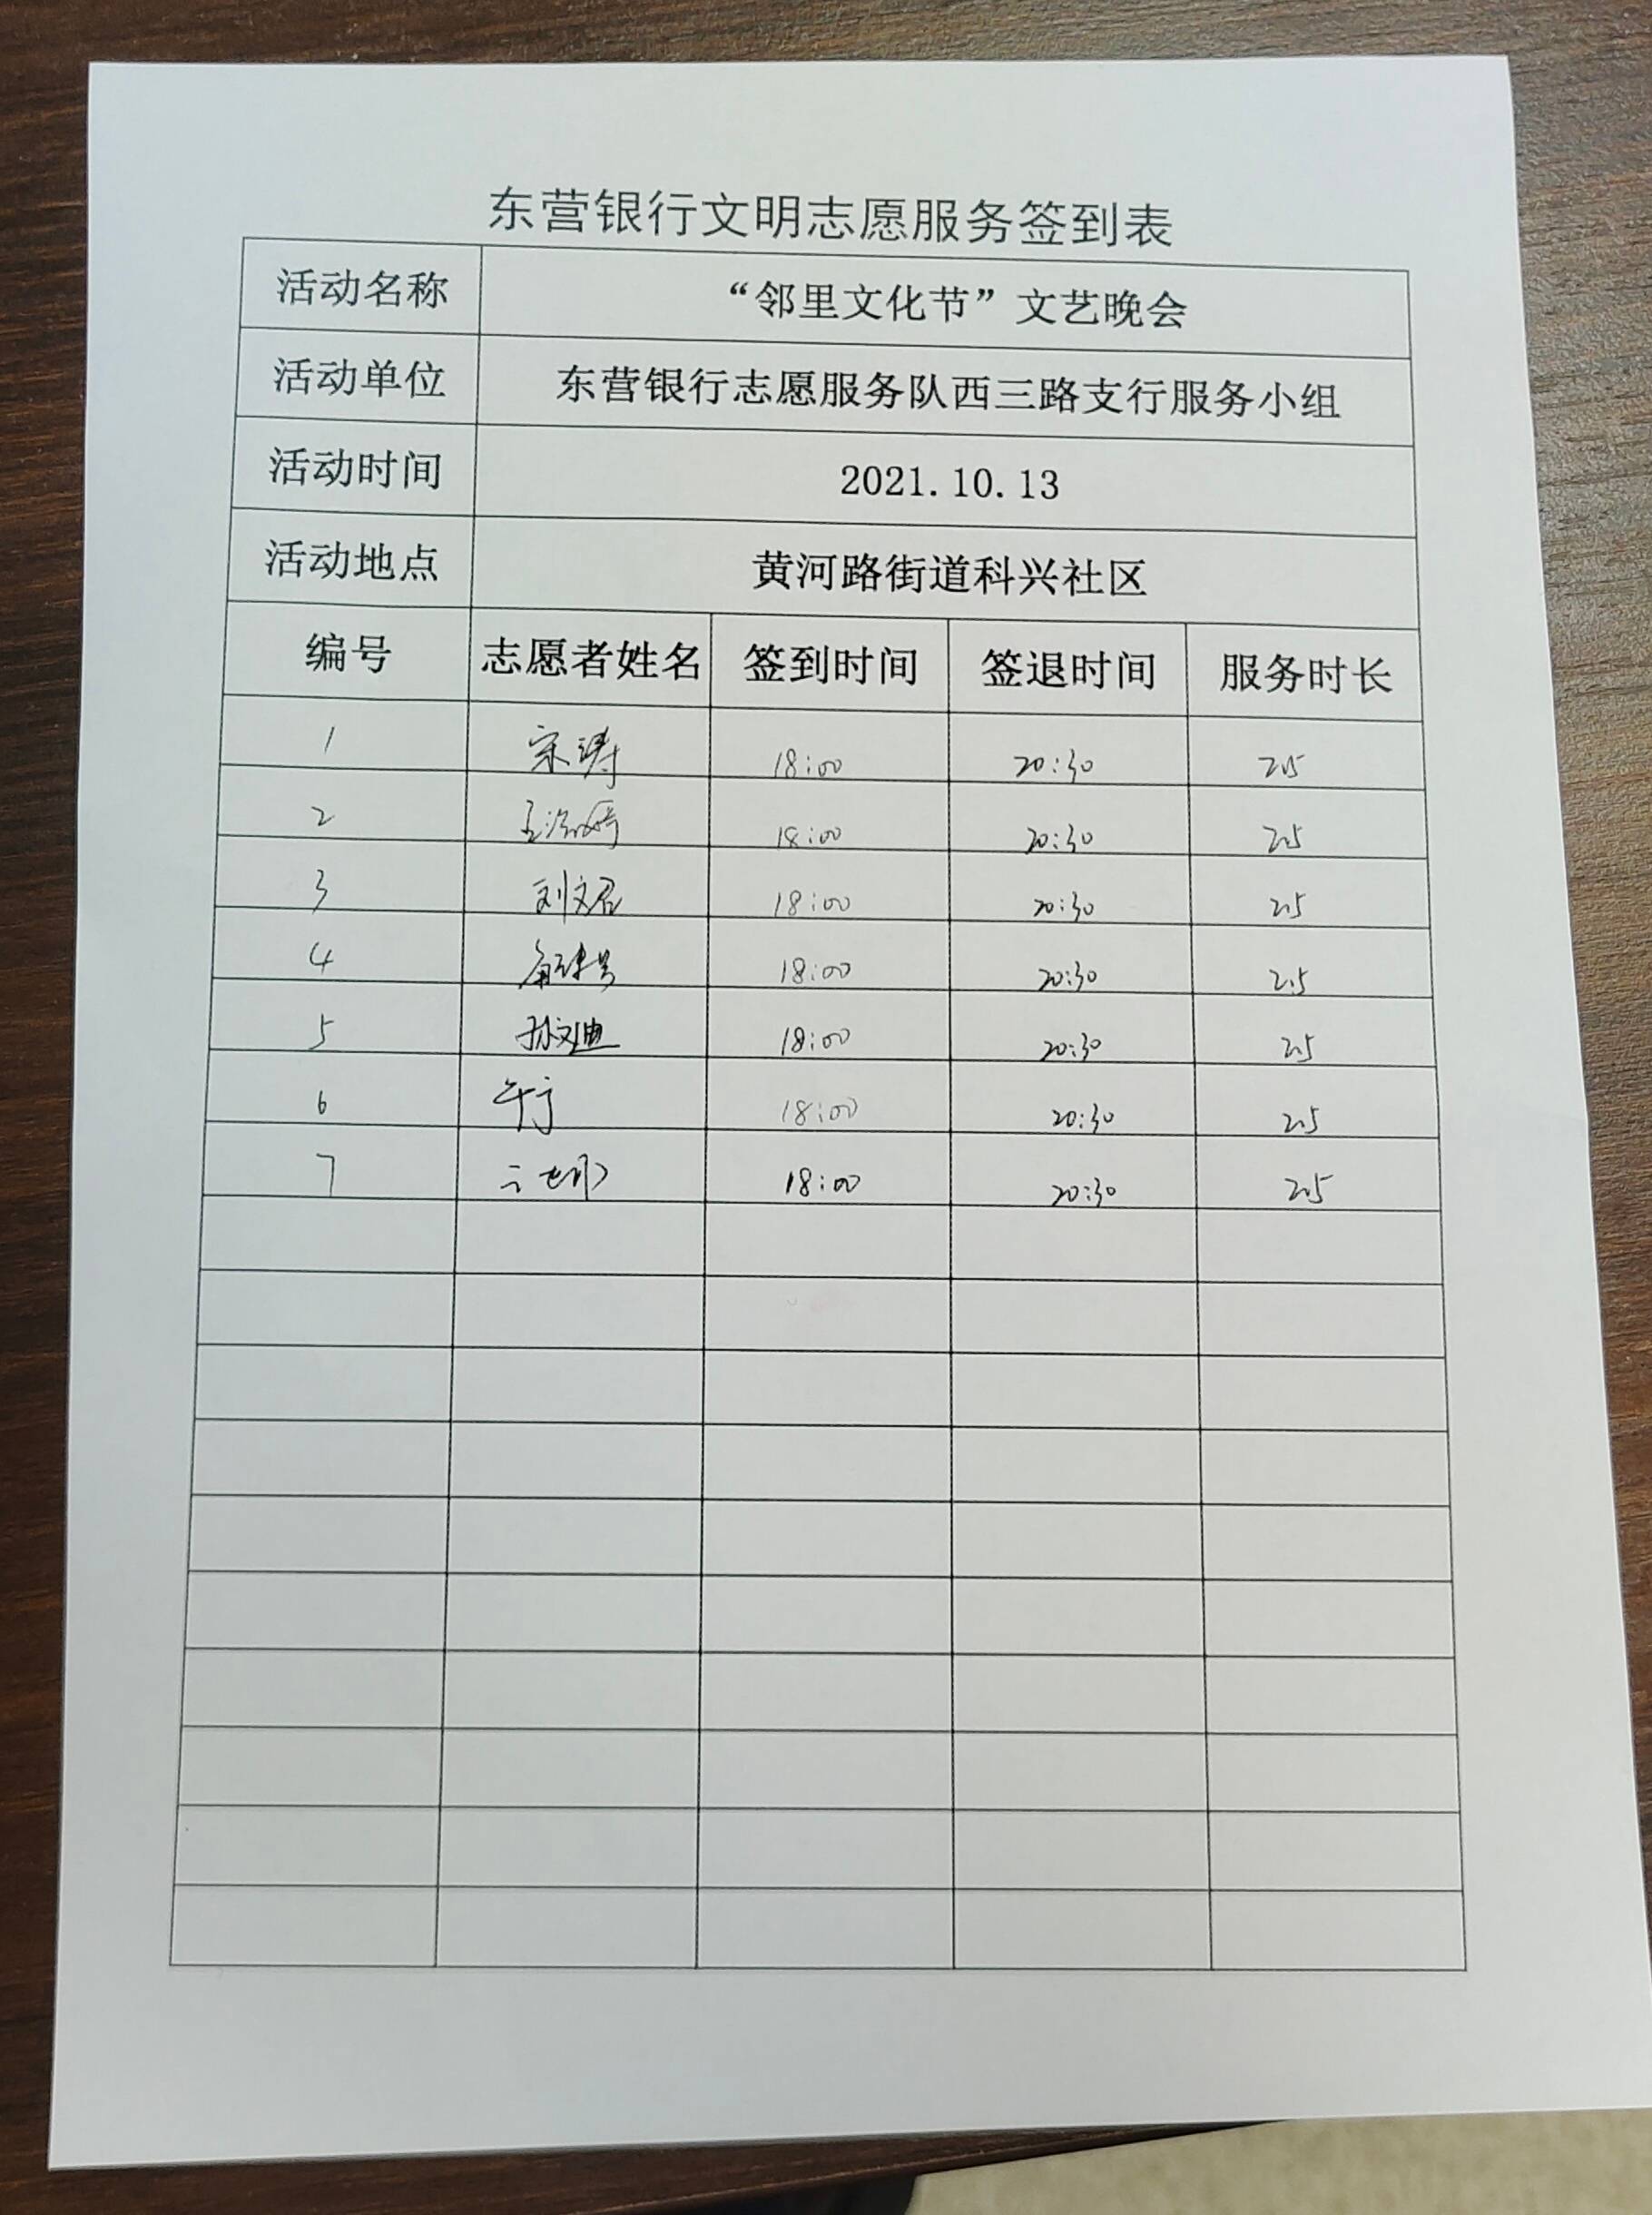 东营银行文明志愿服务签到表
活动名称 “邻里文化节”文艺晚会
活动单位 东营银行志愿服务队西三路支行服务小组
活动时间 2021.10.13
活动地点 黄河路街道科兴社区
编号 志愿者姓名 签到时间 签退时间 服务时长
1 宋涛 18:00 20:30 2.5
2 18:00 20:30 2.5
3 刘文君 18:00 20:30 2.5
4 18:00 20:30 2.5
5 孙文迪 18:00 20:30 2.5
6 18:00 20:30 2.5
7 18:00 20:30 2.5